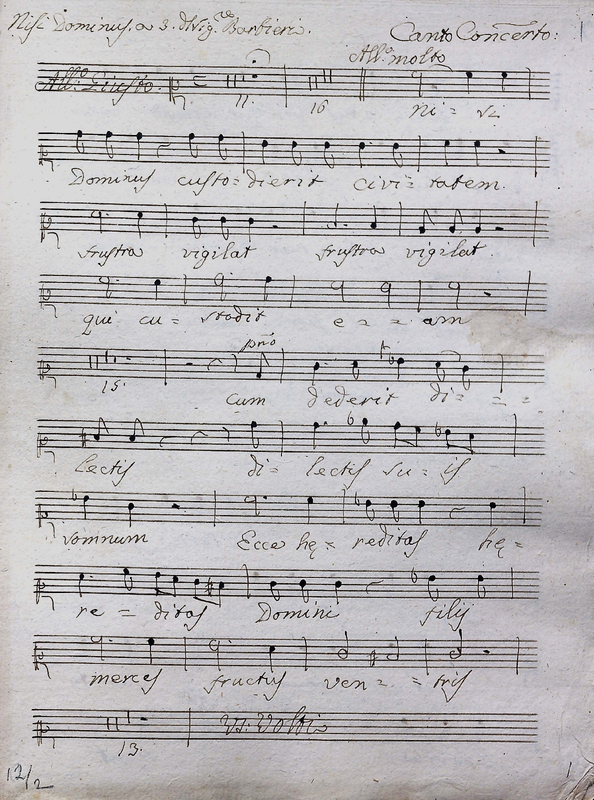 Nisi Dominus. a 3. del Sig.re Barbieri. Canto Concerto:
All.o molto
All.o Giusto.
11. 16
Ni = si
Dominus custo = dierit civi = tatem.
frustra vigilat frustra vigilat.
qui cu = stodit e = = am
pno
15.
cum dederit di = = =
lectis di = lectis su = is
somnum Ecce hę = reditas hę =
re = ditas Domini filij
merces fructus ven = = tris
Vs: Volti
13.
12/2 1